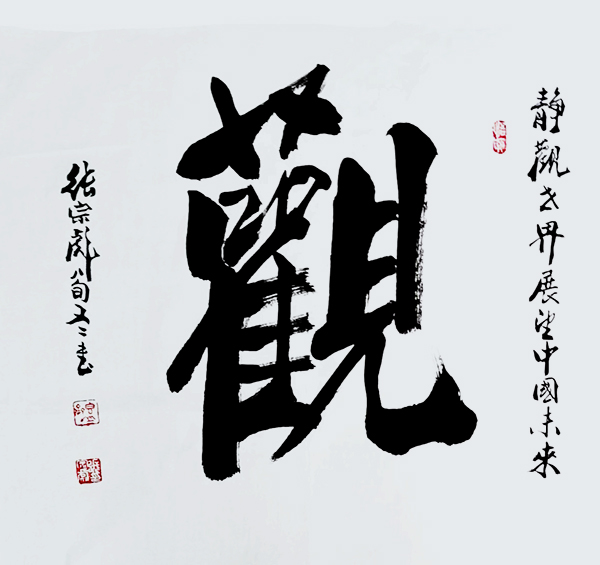 静觀世界展望中國未來
觀
张宗彪八旬又二書